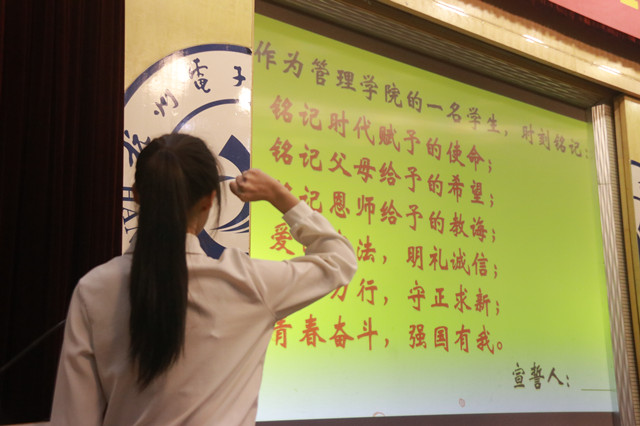 州電子
HAN
作为管理学院的一名学生，时刻铭记：
铭记时代赋予的使命；
铭记父母给予的希望；
记恩师给予的教诲；
爱 法，明礼诚信；
力行，守正求新；
青春奋斗，强国有我。
宣誓人：